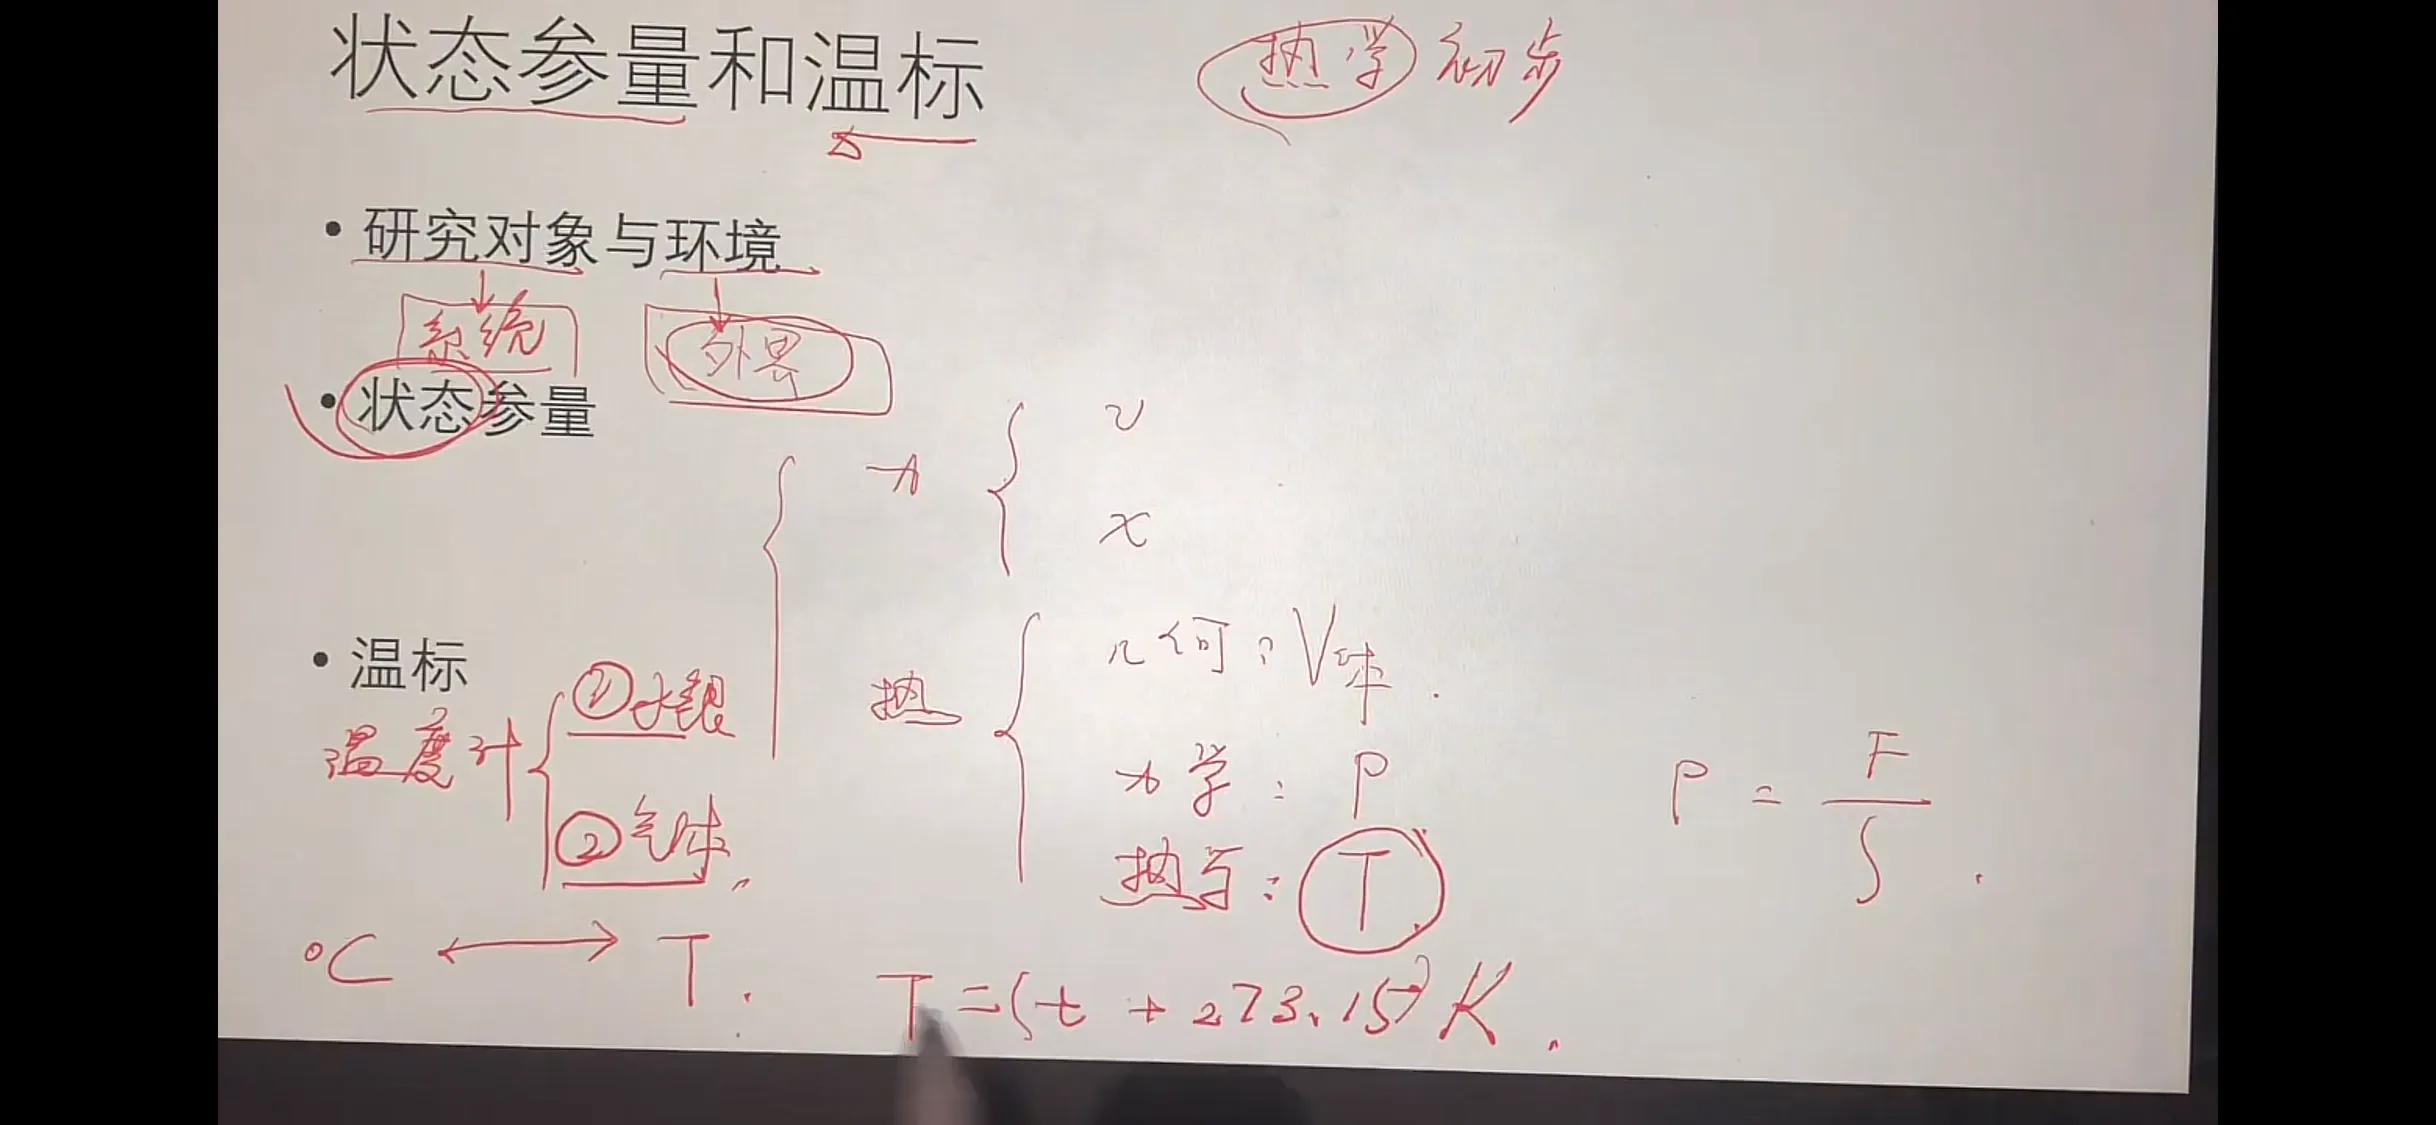 状态参量和温标
热学初步
• 研究对象与环境
系统 外界
• 状态参量
力 { v
x
热 { 几何: V体.
力学: P
热学: T
P = F/S.
• 温标
温度计 { ①水银
②气体.
°C ⟷ T.
T=(t + 273.15)K.